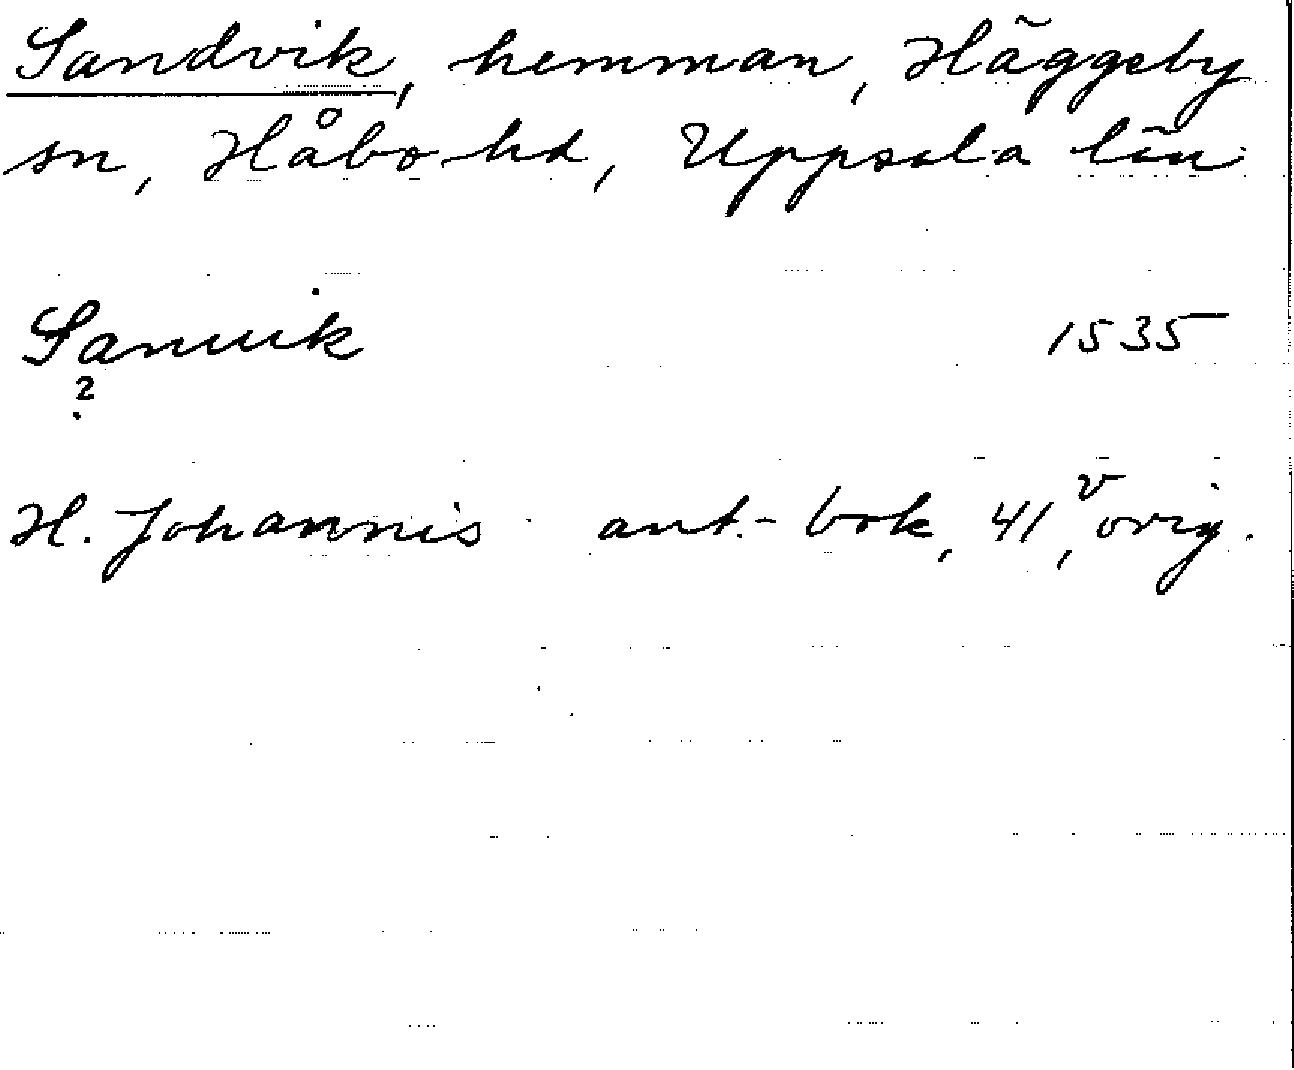 Sandvik, hemman, Häggeby
sn, Håbo hd, Uppsala län
Sanuik 1535
?
H. Johannis ant.-bok, 41v, orig.